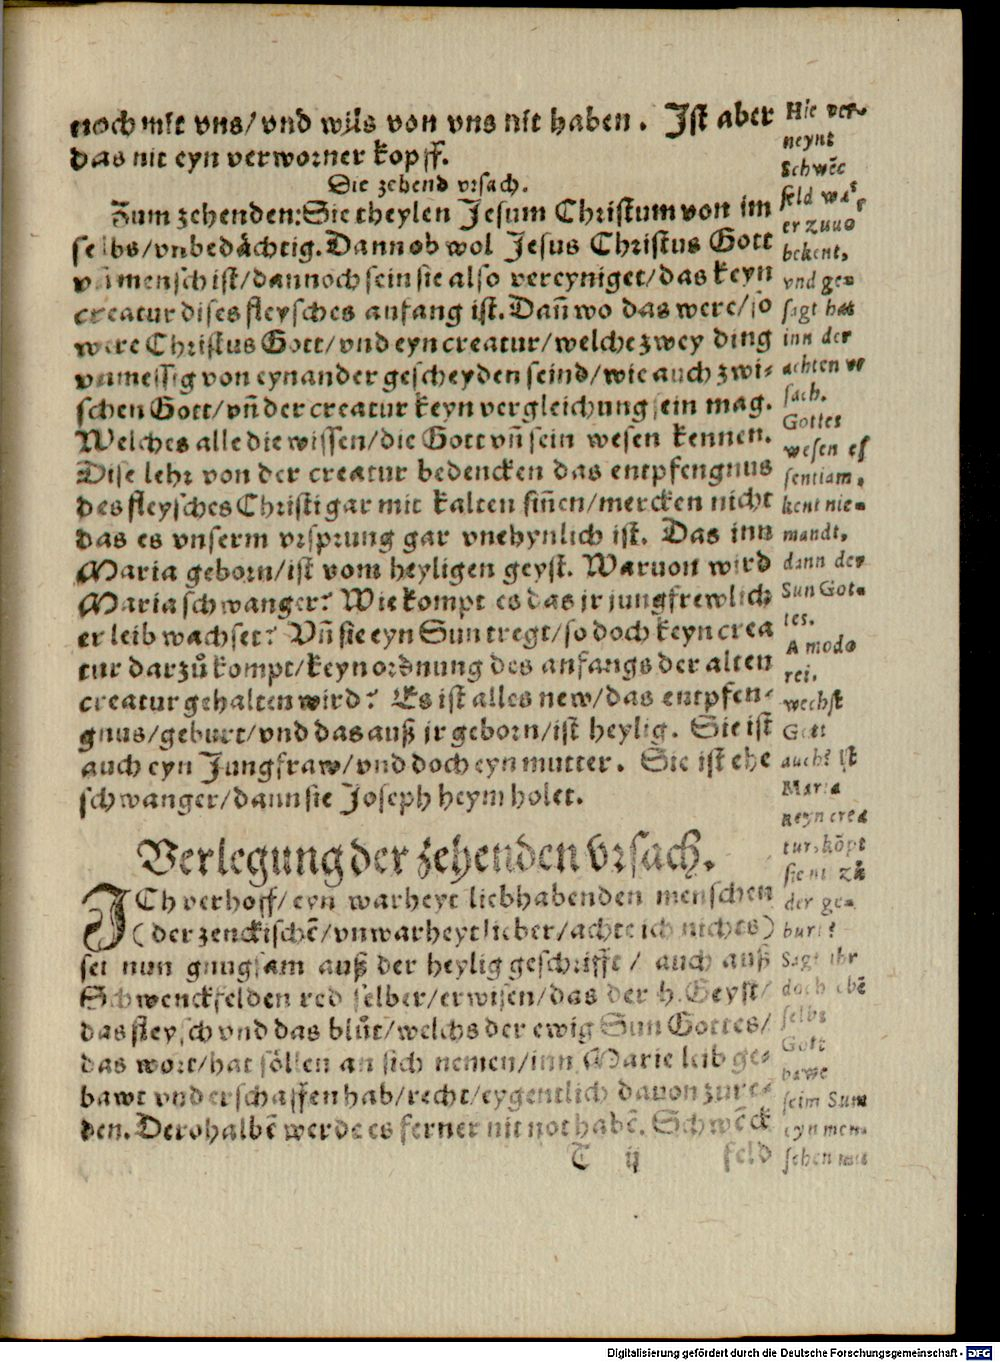 noch mit vns/vnd wils von vns nit haben. Jst aber
das nit eyn verworner kopff.
Die zehend vrsach.
Zum zehenden: Sie theylen Jesum Christum von im
selbs/vnbedächtig. Dann ob wol Jesus Christus Gott
vñ mensch ist/dannoch sein sie also vereyniget/das keyn
creatur dises fleysches anfang ist. Dañ wo das were/so
were Christus Gott/vnd eyn creatur/welche zwey ding
vnmessig von eynander gescheyden seind/wie auch zwi-
schen Gott/vñ der creatur keyn vergleichung sein mag.
Welches alle die wissen/die Gott vñ sein wesen kennen.
Dise lehr von der creatur bedencken das entpfengnus
des fleysches Christi gar mit kalten siñen/mercken nicht
das es vnserm vrsprung gar vnehynlich ist. Das inn
Maria geborn/ist vom heyligen geyst. Waruon wird
Maria schwanger? Wie kompt es das jr jungfrewlich
er leib wachset? Vñ sie eyn Sun tregt/so doch keyn crea
tur darzů kompt/keyn ordnung des anfangs der alten
creatur gehalten wird? Es ist alles new/das entpfen-
gnus/geburt/vnd das auß jr geborn/ist heylig. Sie ist
auch eyn Jungfraw/vnd doch eyn mutter. Sie ist ehe
schwanger/dann sie Joseph heym holet.
Verlegung der zehenden vrsach.
JCh verhoff/eyn warheyt liebhabenden menschen
(der zenckischẽ/vnwarheyt lieber/achte ich nichts)
sei nun gnugsam auß der heylig geschrifft/ auch auß
Schwenckfelden red selber/erwisen/das der h. Geyst/
das fleysch vnd das blůt/welchs der ewig Sun Gottes/
das wort/hat söllen an sich nemen/inn Marie leib ge-
bawt vnd erschaffen hab/recht/eygentlich dauon zure-
den. Derohalbẽ werde es ferner nit not habẽ. Schwẽck
T ij feld
Hie ver-
neynt
Schwẽc
feld was
er zuuo
bekent,
vnd ge-
sagt hat
inn der
achten vr
sach.
Gottes
wesen es
sentiam,
kent nie-
mandt,
dann der
Sun Got-
tes.
A modo
rei.
wechst
Gott
auch? ist
Maria
keyn crea
tur, köpt
sie nit zů
der ge-
burt?
Sagt ihr
doch ebẽ
selbs
Gott
bawe
seim Sun
eyn men-
schen
Digitalisierung gefördert durch die Deutsche Forschungsgemeinschaft - DFG